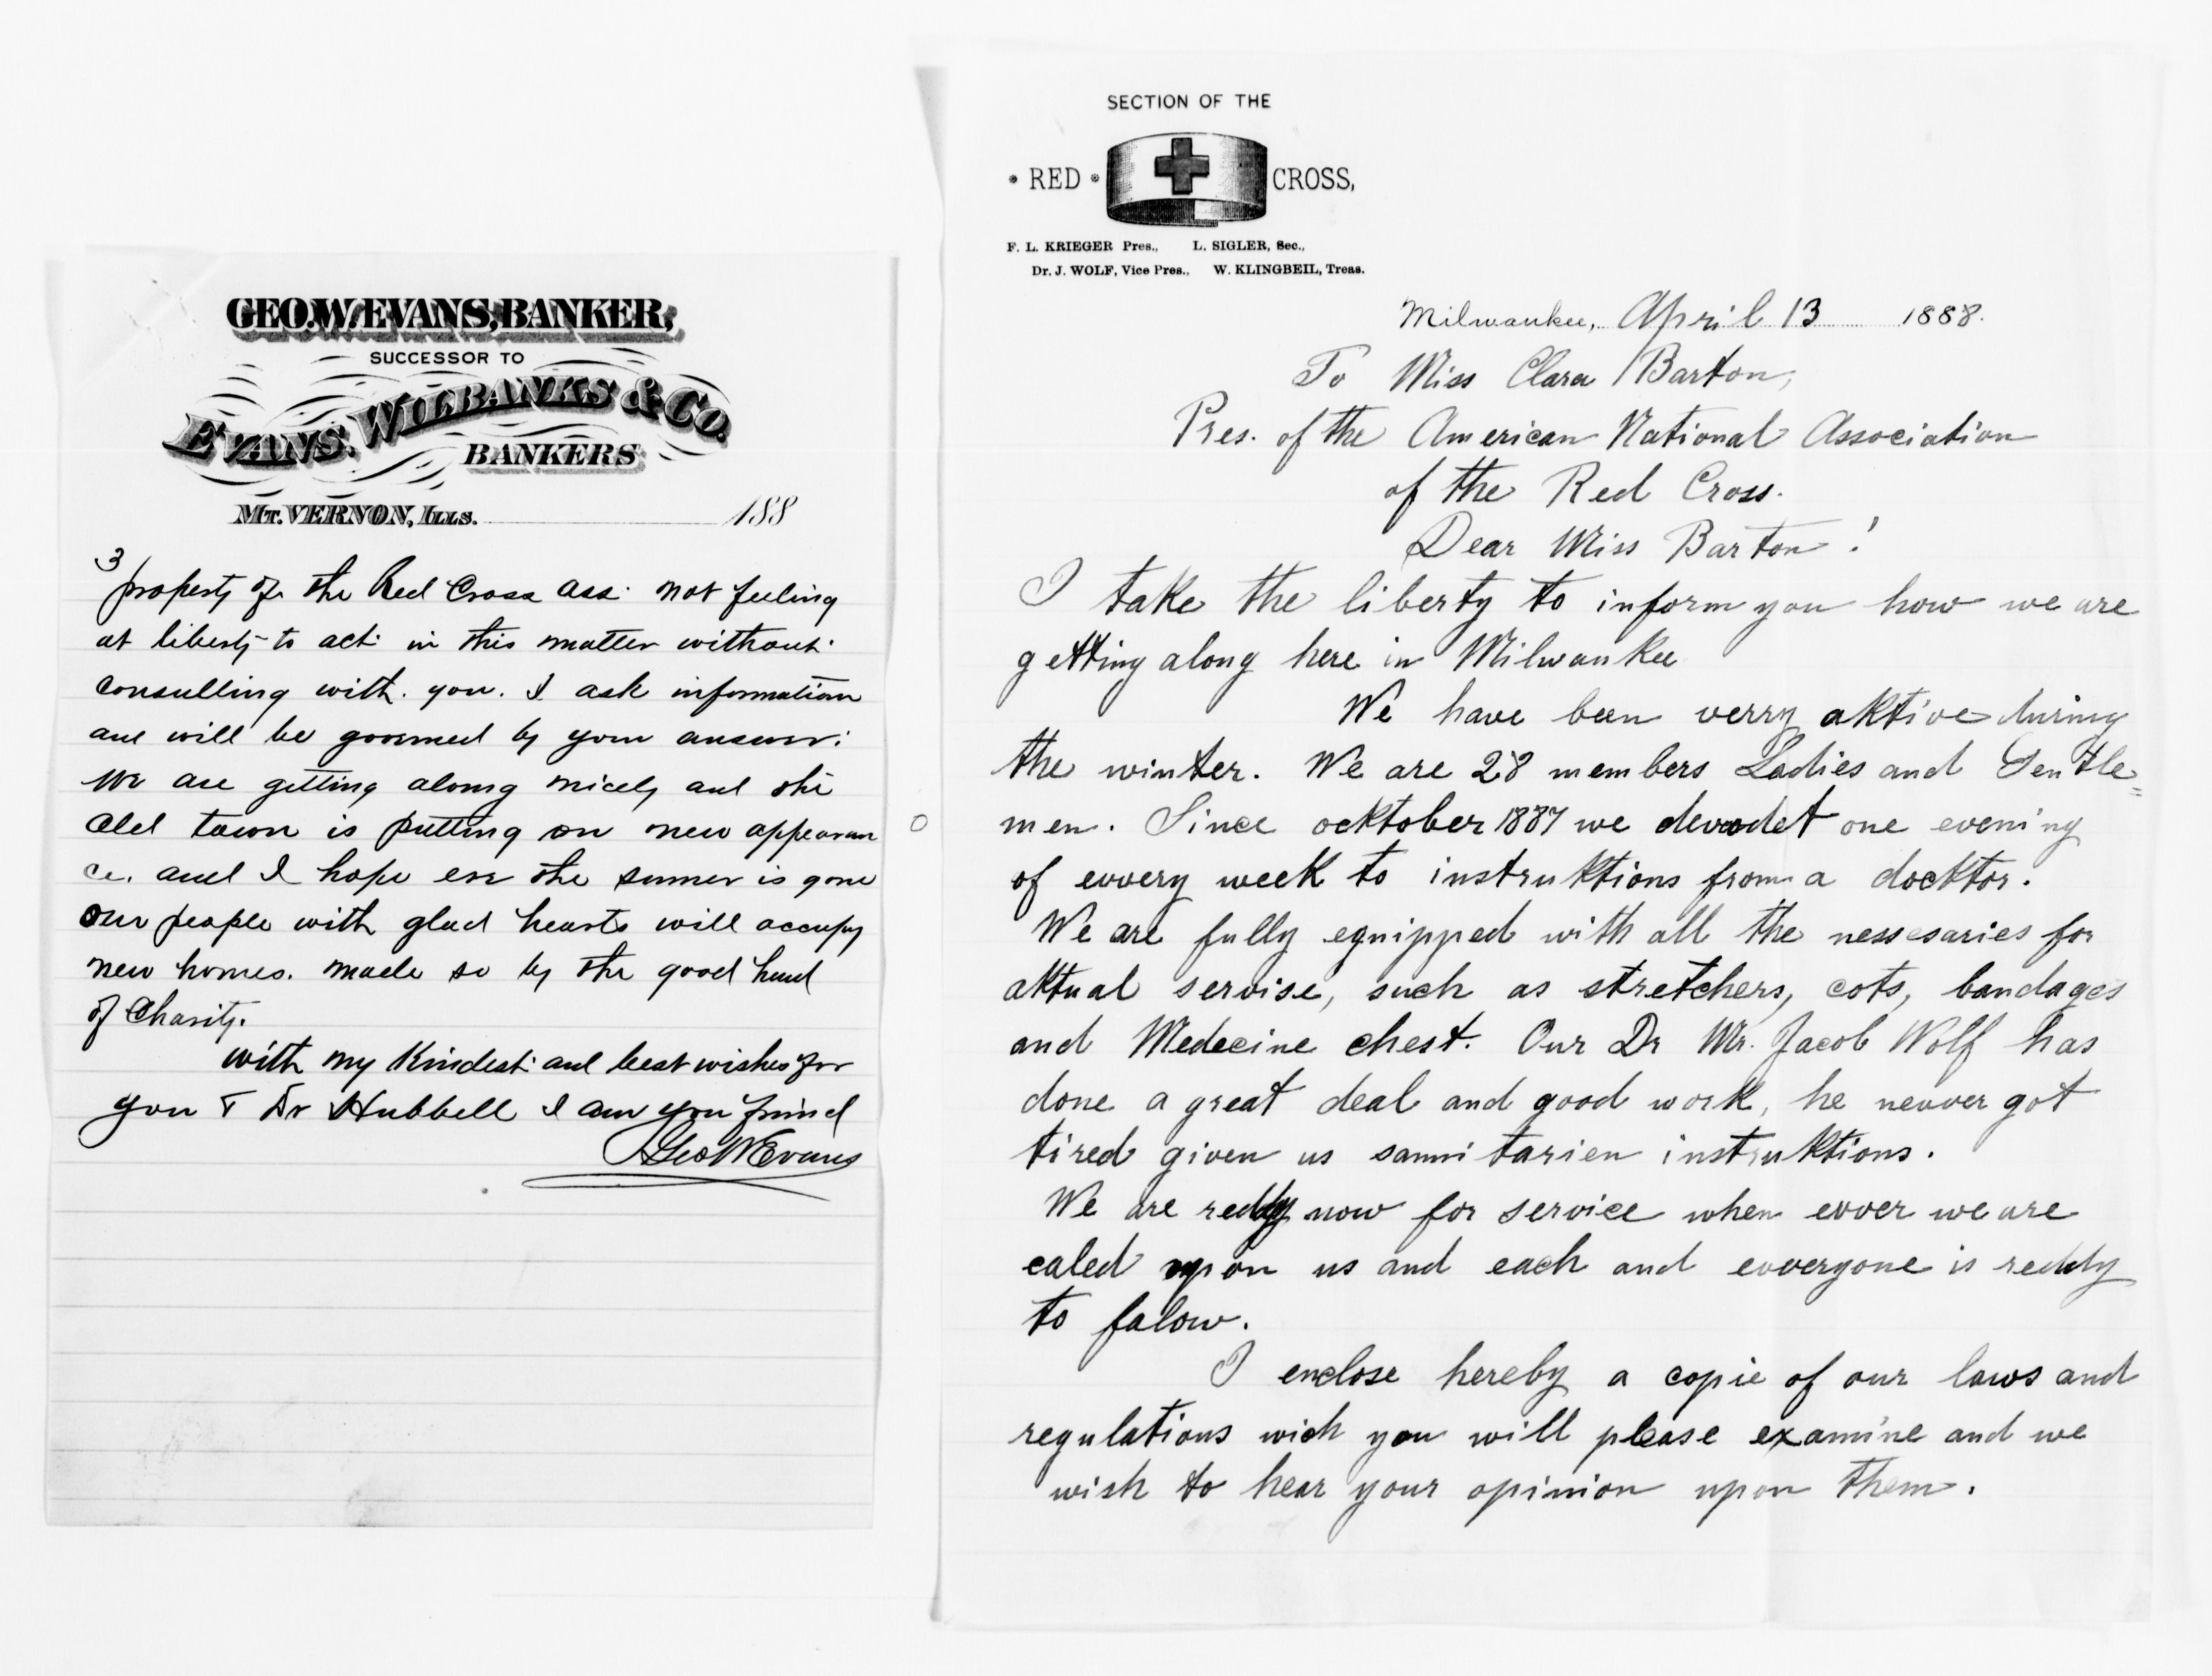 GEO. W. EVANS, BANKER,
SUCCESSOR TO
EVANS, WILBANKS & CO.
BANKERS
MT. VERNON, ILLS. 188
3
property of the Red Cross Ass. not feeling
at liberty to act in this matter without
consulling with you. I ask information
and will be governed by your answer.
We are getting along nicely and the
Old town is putting on new appearan
ce. and I hope ere the sumer is gone
our people with glad hearts will occupy
new homes. made so by the good hand
of Charity.
with my Kindest and best wishes for
you & Dr Hubbell I am you friend
Geo W Evans
SECTION OF THE
* RED * CROSS,
F. L. KRIEGER Pres., L. SIGLER, Sec.,
Dr. J. WOLF, Vice Pres., W. KLINGBEIL, Treas.
Milwaukee, April 13 1888.
To Miss Clara Barton,
Pres. of the American National Association
of the Red Cross.
Dear Miss Barton!
I take the liberty to inform you how we are
getting along here in Milwaukee
We have been verry aktive during
the winter. We are 28 members Ladies and Gentle=
men. Since ocktober 1887 we devodet one evening
of evvery week to instruktions from a docktor.
We are fully equipped with all the nessesaries for
aktual servise, such as stretchers, cots, bandages
and Medecine chest. Our Dr Mr. Jacob Wolf has
done a great deal and good work, he nevver got
tired given us sannitarien instruktions.
We are reddy now for service when evver we are
caled upon us and each and evveryone is reddy
to falow.
I enclose hereby a copie of our laws and
regulations wich you will please examine and we
wish to hear your opinion upon them.